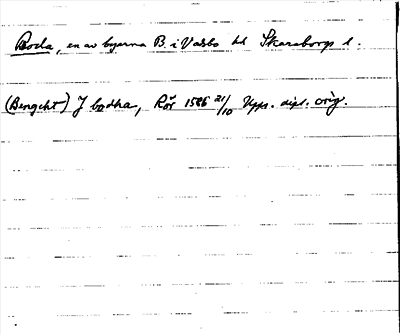 Boda, en av byarna B. i Valbo hd Skaraborgs l.
(Bengcht) J bodha, Rör 1586 21/10 Upps. dipl. orig.